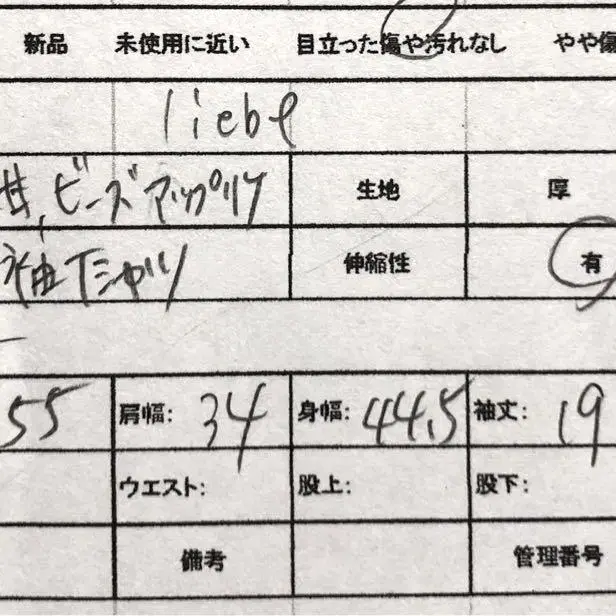 新品 未使用に近い 目立った傷や汚れなし やや傷
liebe
ビーズアップリケ 生地 厚
袖Tシャツ 伸縮性 有
55 肩幅: 34 身幅: 44.5 袖丈: 19
ウエスト: 股上: 股下:
備考 管理番号